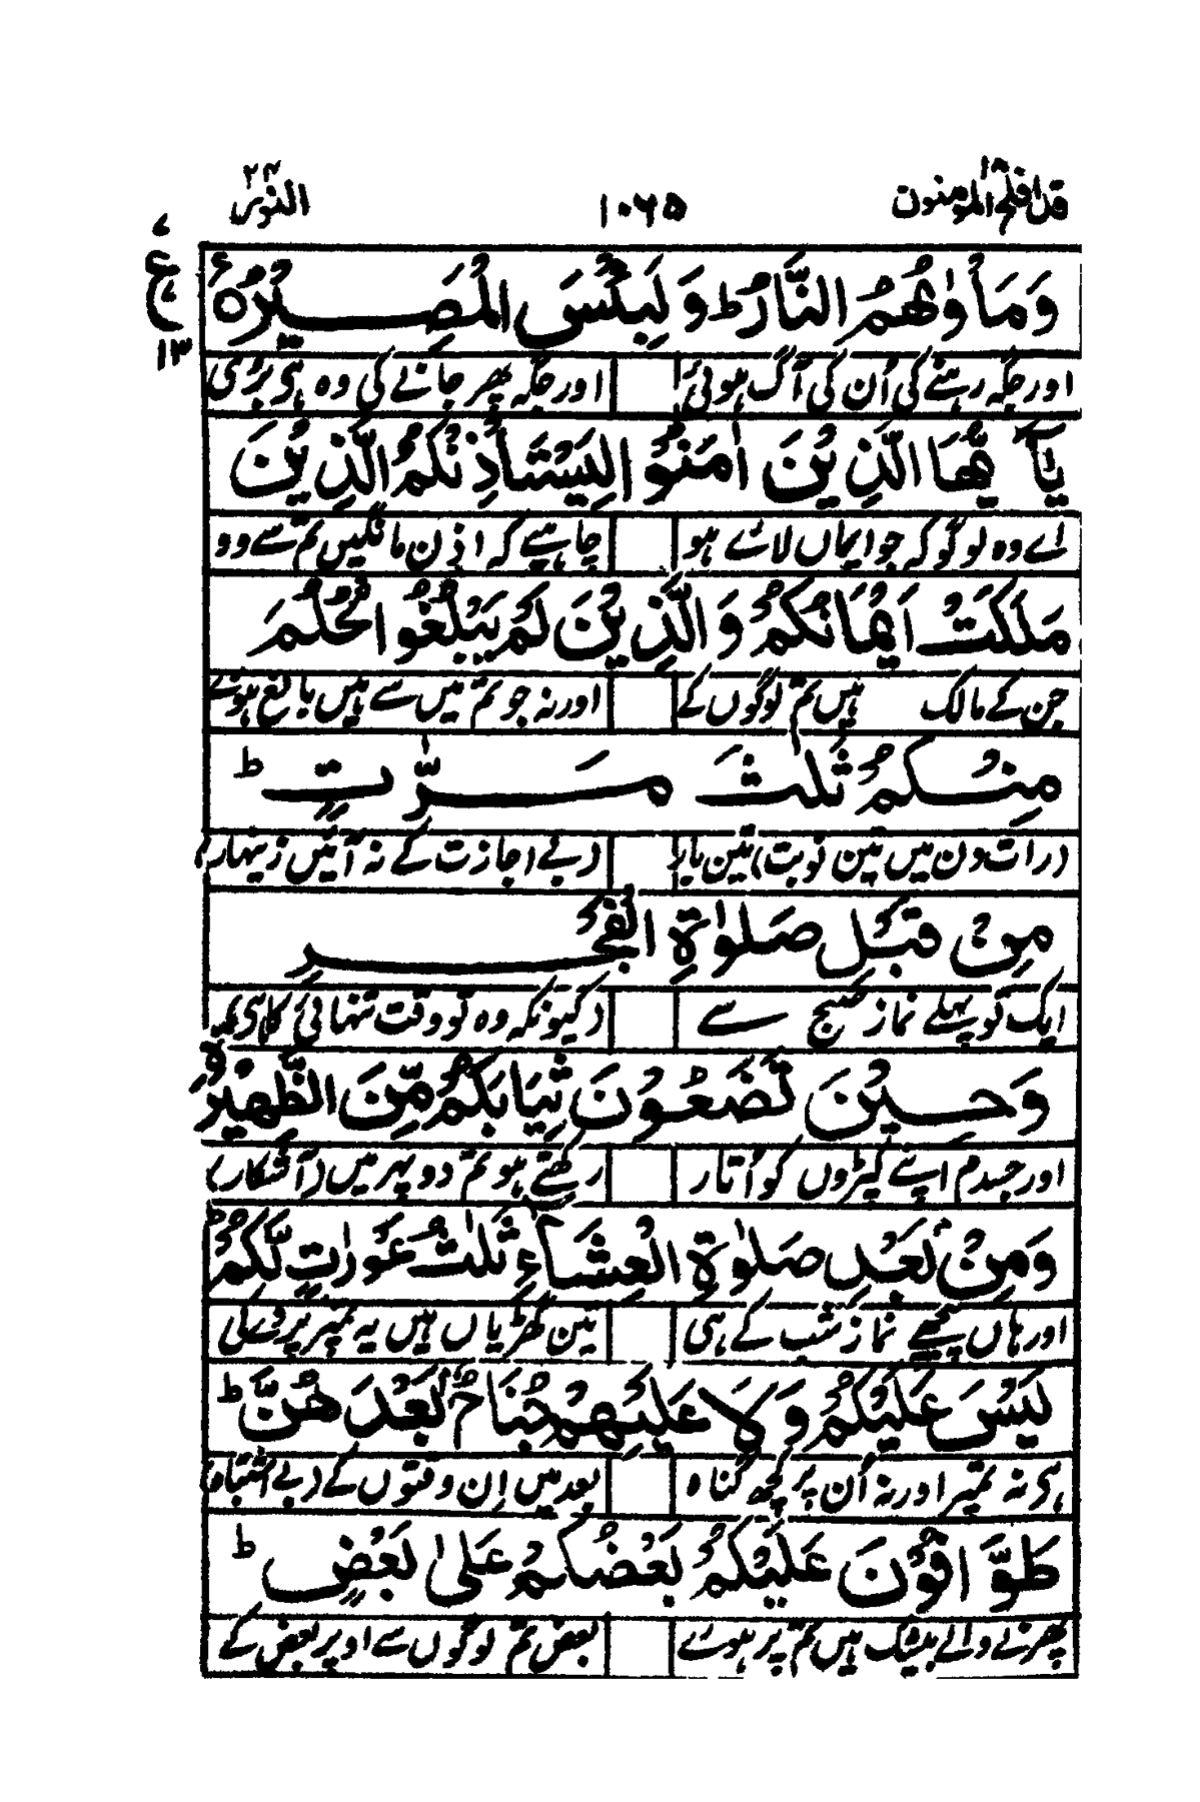 قد افلح المؤمنون ۱۸ ۱۰۶۵ النور ۲۴
وَمَأْوٰىهُمُ النَّارُ ؕ وَلَبِئْسَ الْمَصِيْرُ ۠
ع ۷ ۱۳
اور جگہ رہنے کی اُن کی آگ ہوئی اور جگہ پھر جانے کی وہ ہی بڑی
يٰۤاَيُّهَا الَّذِيْنَ اٰمَنُوْا لِيَسْتَاْذِنْكُمُ الَّذِيْنَ
اے وہ لوگو کہ جو ایماں لائے ہو چاہیے کہ اذن مانگیں تم سے وو
مَلَكَتْ اَيْمَانُكُمْ وَالَّذِيْنَ لَمْ يَبْلُغُوا الْحُلُمَ
جن کے مالک ہیں تم لوگوں کے اور نہ جو تم میں سے ہیں بالغ ہوئے
مِنْكُمْ ثَلٰثَ مَرّٰتٍ ؕ
(رات دن میں تین نوبت) تین بار (بے اجازت کے نہ آئیں زینہار)
مِنْ قَبْلِ صَلٰوةِ الْفَجْرِ
ایک تو پہلے نماز صبح سے (کیونکہ وہ تو وقت تنہائی کا ہی
وَحِيْنَ تَضَعُوْنَ ثِيَابَكُمْ مِّنَ الظَّهِيْرَةِ
اور جسدم اپنے کپڑوں کو اُتار رکھتے ہو تم دو پہر میں (آشکار)
وَمِنْ بَعْدِ صَلٰوةِ الْعِشَآءِ ثَلٰثُ عَوْرٰتٍ لَّكُمْ ؕ
اور ہاں پیچھے نماز شب کے ہی تین گھڑیاں ہیں یہ تمپر پردے کی
لَيْسَ عَلَيْكُمْ وَلَا عَلَيْهِمْ جُنَاحٌۢ بَعْدَهُنَّ ؕ
ہی نہ تمپر اور نہ اُن پر کچھ گناہ بعد میں اِن وقتوں کے (بے اشتباہ)
طَوّٰفُوْنَ عَلَيْكُمْ بَعْضُكُمْ عَلٰى بَعْضٍ ؕ
پھرنے والے بیشک ہیں تم پر ہوئے بعض تم لوگوں سے اوپر بعض کے